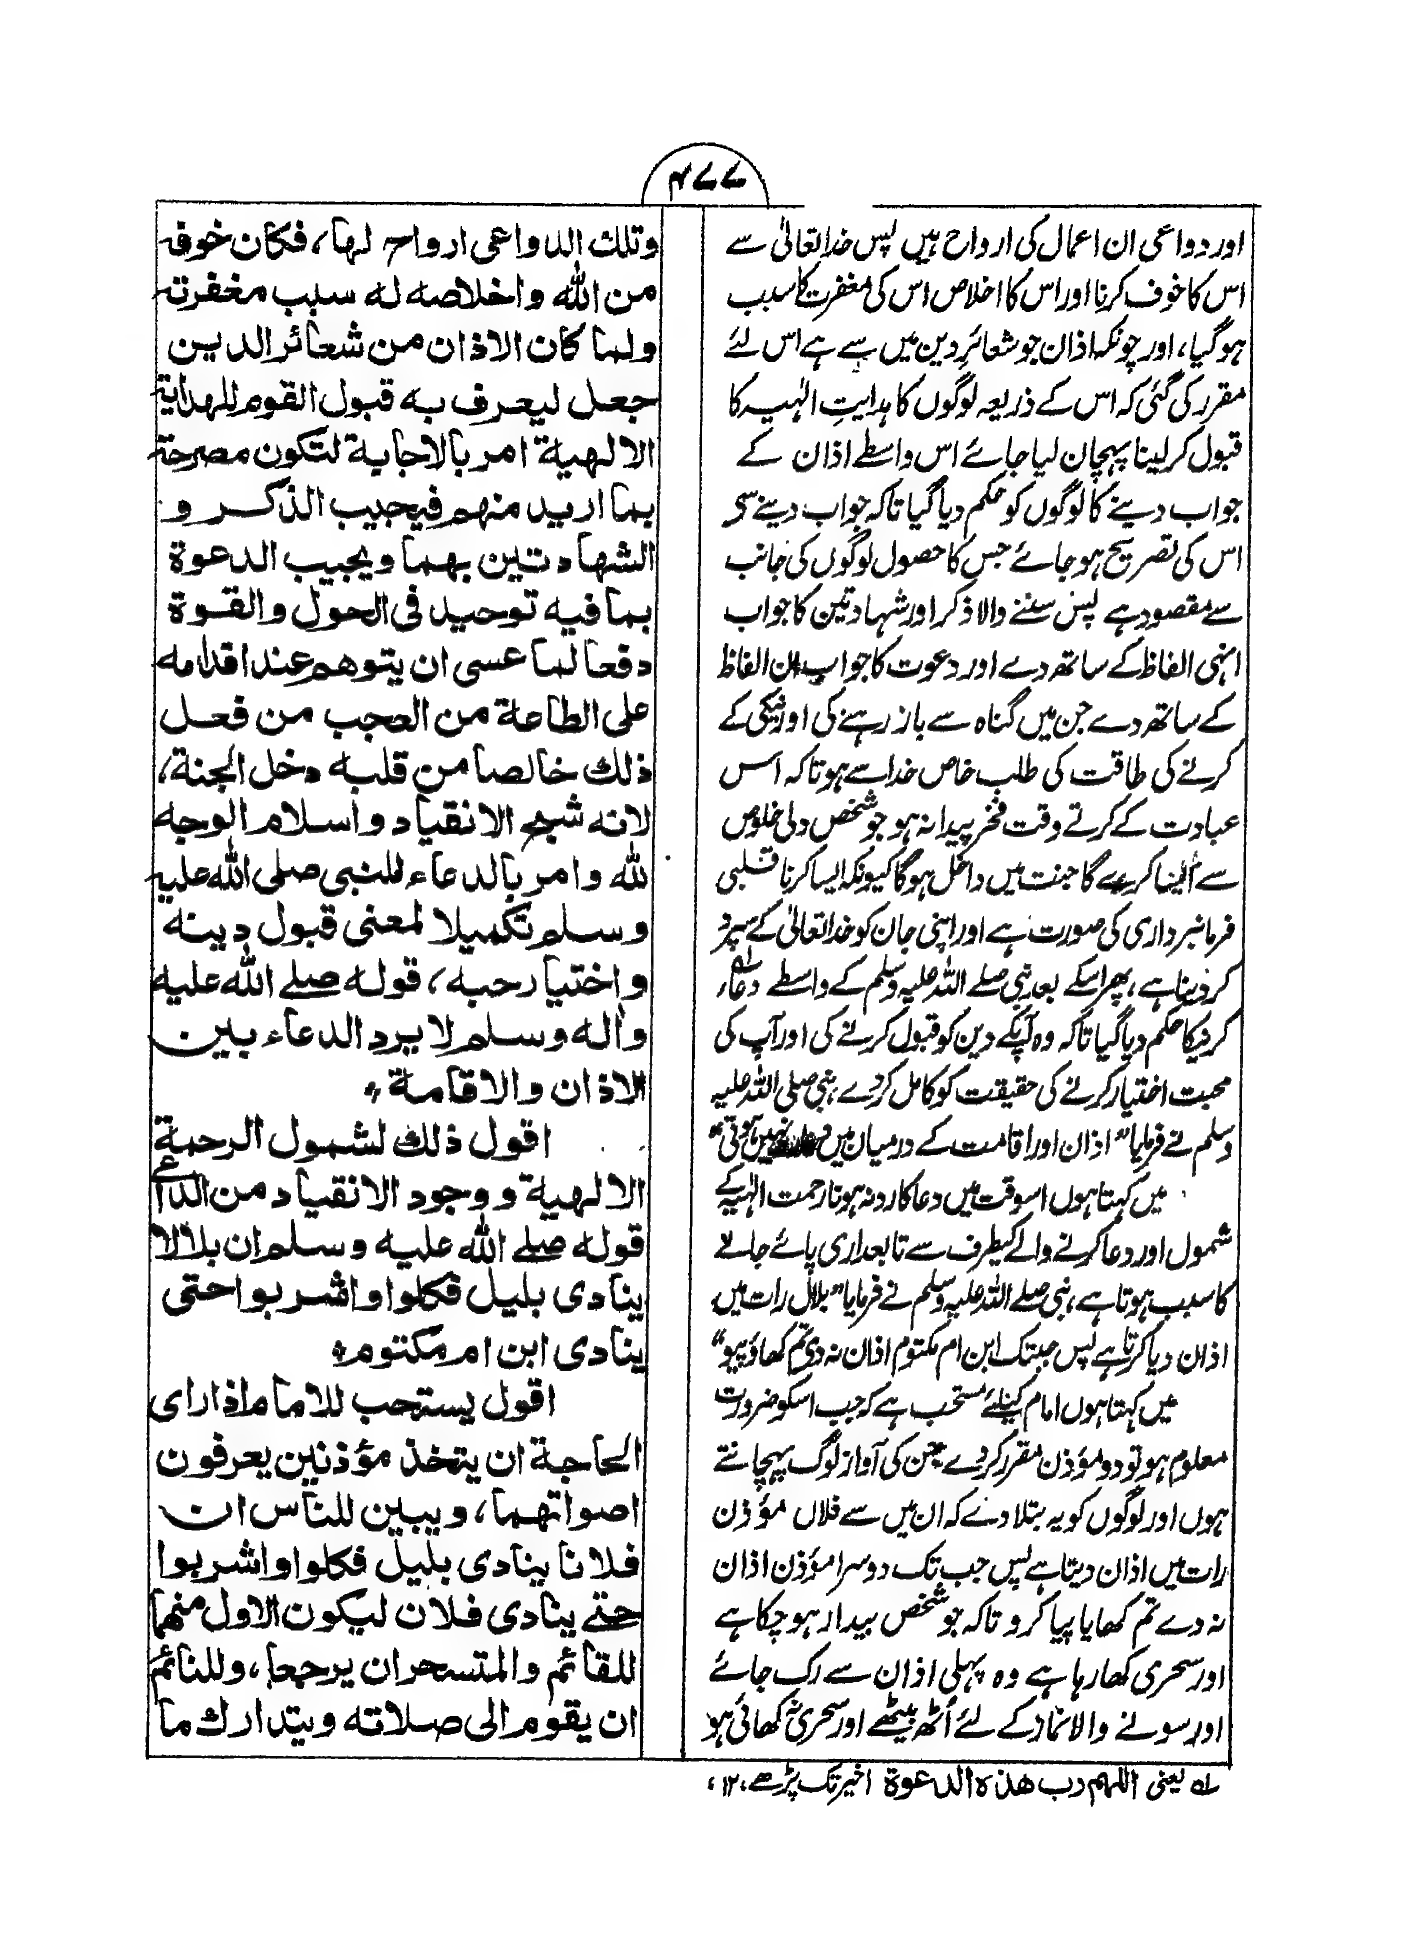 ۴۷۷
اور دواعی ان اعمال کی ارواح ہیں پس خدا تعالیٰ سے
اس کا خوف کرنا اور اس کا اخلاص اس کی مغفرت کا سبب
ہو گیا، اور چونکہ اذان جو شعائر دین میں سے ہے اس لئے
مقرر کی گئی کہ اس کے ذریعہ لوگوں کا ہدایتِ الٰہیہ کا
قبول کر لینا پہچان لیا جائے اس واسطے اذان کے
جواب دینے کا لوگوں کو حکم دیا گیا تاکہ جواب دینے سے
اس کی تصریح ہو جائے جس کا حصول لوگوں کی جانب
سے مقصود ہے پس سننے والا ذکر اور شہادتین کا جواب
انہی الفاظ کے ساتھ دے اور دعوت کا جواب ان الفاظ
کے ساتھ دے جن میں گناہ سے باز رہنے کی اور نیکی کے
کرنے کی طاقت کی طلب خاص خدا سے ہو تاکہ اس
عبادت کے کرتے وقت فخر پیدا نہ ہو جو شخص دلی خلوص
سے ایسا کریگا جنت میں داخل ہوگا کیونکہ ایسا کرنا قلبی
فرمانبرداری کی صورت ہے اور اپنی جان کو خدا تعالیٰ کے سپرد
کر دینا ہے، پھر اسکے بعد نبی صلے اللہ علیہ وسلم کے واسطے دعاء
کرنیکا حکم دیا گیا تاکہ وہ آپکے دین کو قبول کرنے کی اور آپ کی
محبت اختیار کرنے کی حقیقت کو کامل کردے، نبی صلی اللہ علیہ
وسلم نے فرمایا "اذان اور اقامت کے درمیان میں نہیں ہوتی"
میں کہتا ہوں اسوقت میں دعا کا رد نہ ہونا رحمت الٰہیہ کے
شمول اور دعا کرنے والے کیطرف سے تابعداری پائے جانے
کا سبب ہوتا ہے، نبی صلے اللہ علیہ وسلم نے فرمایا "بلال رات میں
اذان دیا کرتا ہے پس جبتک ابن ام مکتوم اذان نہ دی تم کھاؤ پیو"
میں کہتا ہوں امام کیلئے مستحب ہے کہ جب اسکو ضرورت
معلوم ہو تو دو مؤذن مقرر کردے جن کی آواز لوگ پہچانتے
ہوں اور لوگوں کو یہ بتلا دے کہ ان میں سے فلاں مؤذن
رات میں اذان دیتا ہے پس جب تک دوسرا مؤذن اذان
نہ دے تم کھایا پیا کرو تاکہ جو شخص بیدار ہو چکا ہے
اور سحری کھا رہا ہے وہ پہلی اذان سے رک جائے
اور سونے والا نماز کے لئے اُٹھ بیٹھے اور سحری نہ کھائی ہو
لہ یعنی اللهم رب هذه الدعوة اخیر تک پڑھے، ۱۲،
وتلك الدواعى ارواح لها، فكان خوفه
من الله واخلاصه له سبب مغفرته
ولما كان الاذان من شعائر الدين
جعل ليعرف به قبول القوم للهداية
الالهية امر بالاجابة لتكون مصرحة
بما اريد منهم فيجيب الذكر و
الشهادتين بهما ويجيب الدعوة
بما فيه توحيد فى الحول والقوة
دفعا لما عسى ان يتوهم عند اقدامه
على الطاعة من العجب من فعل
ذلك خالصا من قلبه دخل الجنة،
لانه شبح الانقياد واسلام الوجه
لله وامر بالدعاء للنبى صلى الله عليه
وسلم تكميلا لمعنى قبول دينه
واختيار حبه، قوله صلے الله عليه
واله وسلم لا يرد الدعاء بين
الاذان والاقامة،
اقول ذلك لشمول الرحمة
الالهية ووجود الانقياد من الداعى
قوله صلے الله عليه وسلم ان بلالا
ينادى بليل فكلوا واشربوا حتى
ينادى ابن ام مكتوم،
اقول يستحب للامام اذا راى
الحاجة ان يتخذ مؤذنين يعرفون
اصواتهما، ويبين للناس ان
فلانا ينادى بليل فكلوا واشربوا
حتے ينادى فلان ليكون الاول منهما
للقائم والمتسحر ان يرجعا، وللنائم
ان يقوم الى صلاته ويتدارك ما